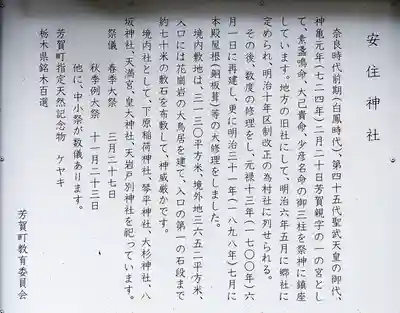 安住神社
奈良時代前期(白鳳時代)、第四十五代聖武天皇の御代、
神亀元年(七二四年)二月二十日芳賀親字の一の宮とし
て、素盞鳴命、大己貴命、少彦名命の御三柱を祭神に鎮座
しています。地方の旧社にして、明治六年五月に郷社に
定められ、明治十年区制改正の為村社に列せられる。
その後、数度の修理をし、元禄十三年(一七〇〇年)六
月一日に再建し、更に明治三十一年(一八九八年)七月に
本殿屋根(銅板葺)等の大修理をしました。
境内敷地は、三一三〇平方米、境外地三六五二平方米、
入口には花崗岩の大鳥居を建て、入口の第一の石段まで
約七十米の敷石を布敷して、神威厳かです。
境内社として、下原稲荷神社、琴平神社、大杉神社、八
坂神社、天満宮、皇大神社、天岩戸別神社を祀っています。
祭儀 春季例大祭 三月二十七日
秋季例大祭 十一月二十三日
他に、中小祭が数儀あります。
芳賀町指定天然記念物 ケヤキ
栃木県銘木百選
芳賀町教育委員会